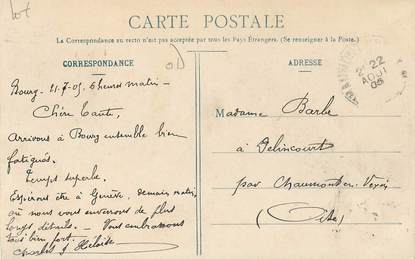 lot
CARTE POSTALE
La Correspondance au recto n'est pas acceptée par tous les Pays Étrangers. (Se renseigner à la Poste.)
CORRESPONDANCE
Bourg - 21-7-05, 6 heures matin -
Chère Tante,
Arrivons à Bourg ensemble bien
fatigués.
Temps superbe.
Espérons être à Genève, demain matin,
où nous vous enverrons de plus
longs détails. - Vous embrassons
tous bien fort.
Charles & Héloïse
ADRESSE
2e 22
AOUT
05
Madame Barbe
à Delincourt
par Chaumont-en-Vexin
(Oise)